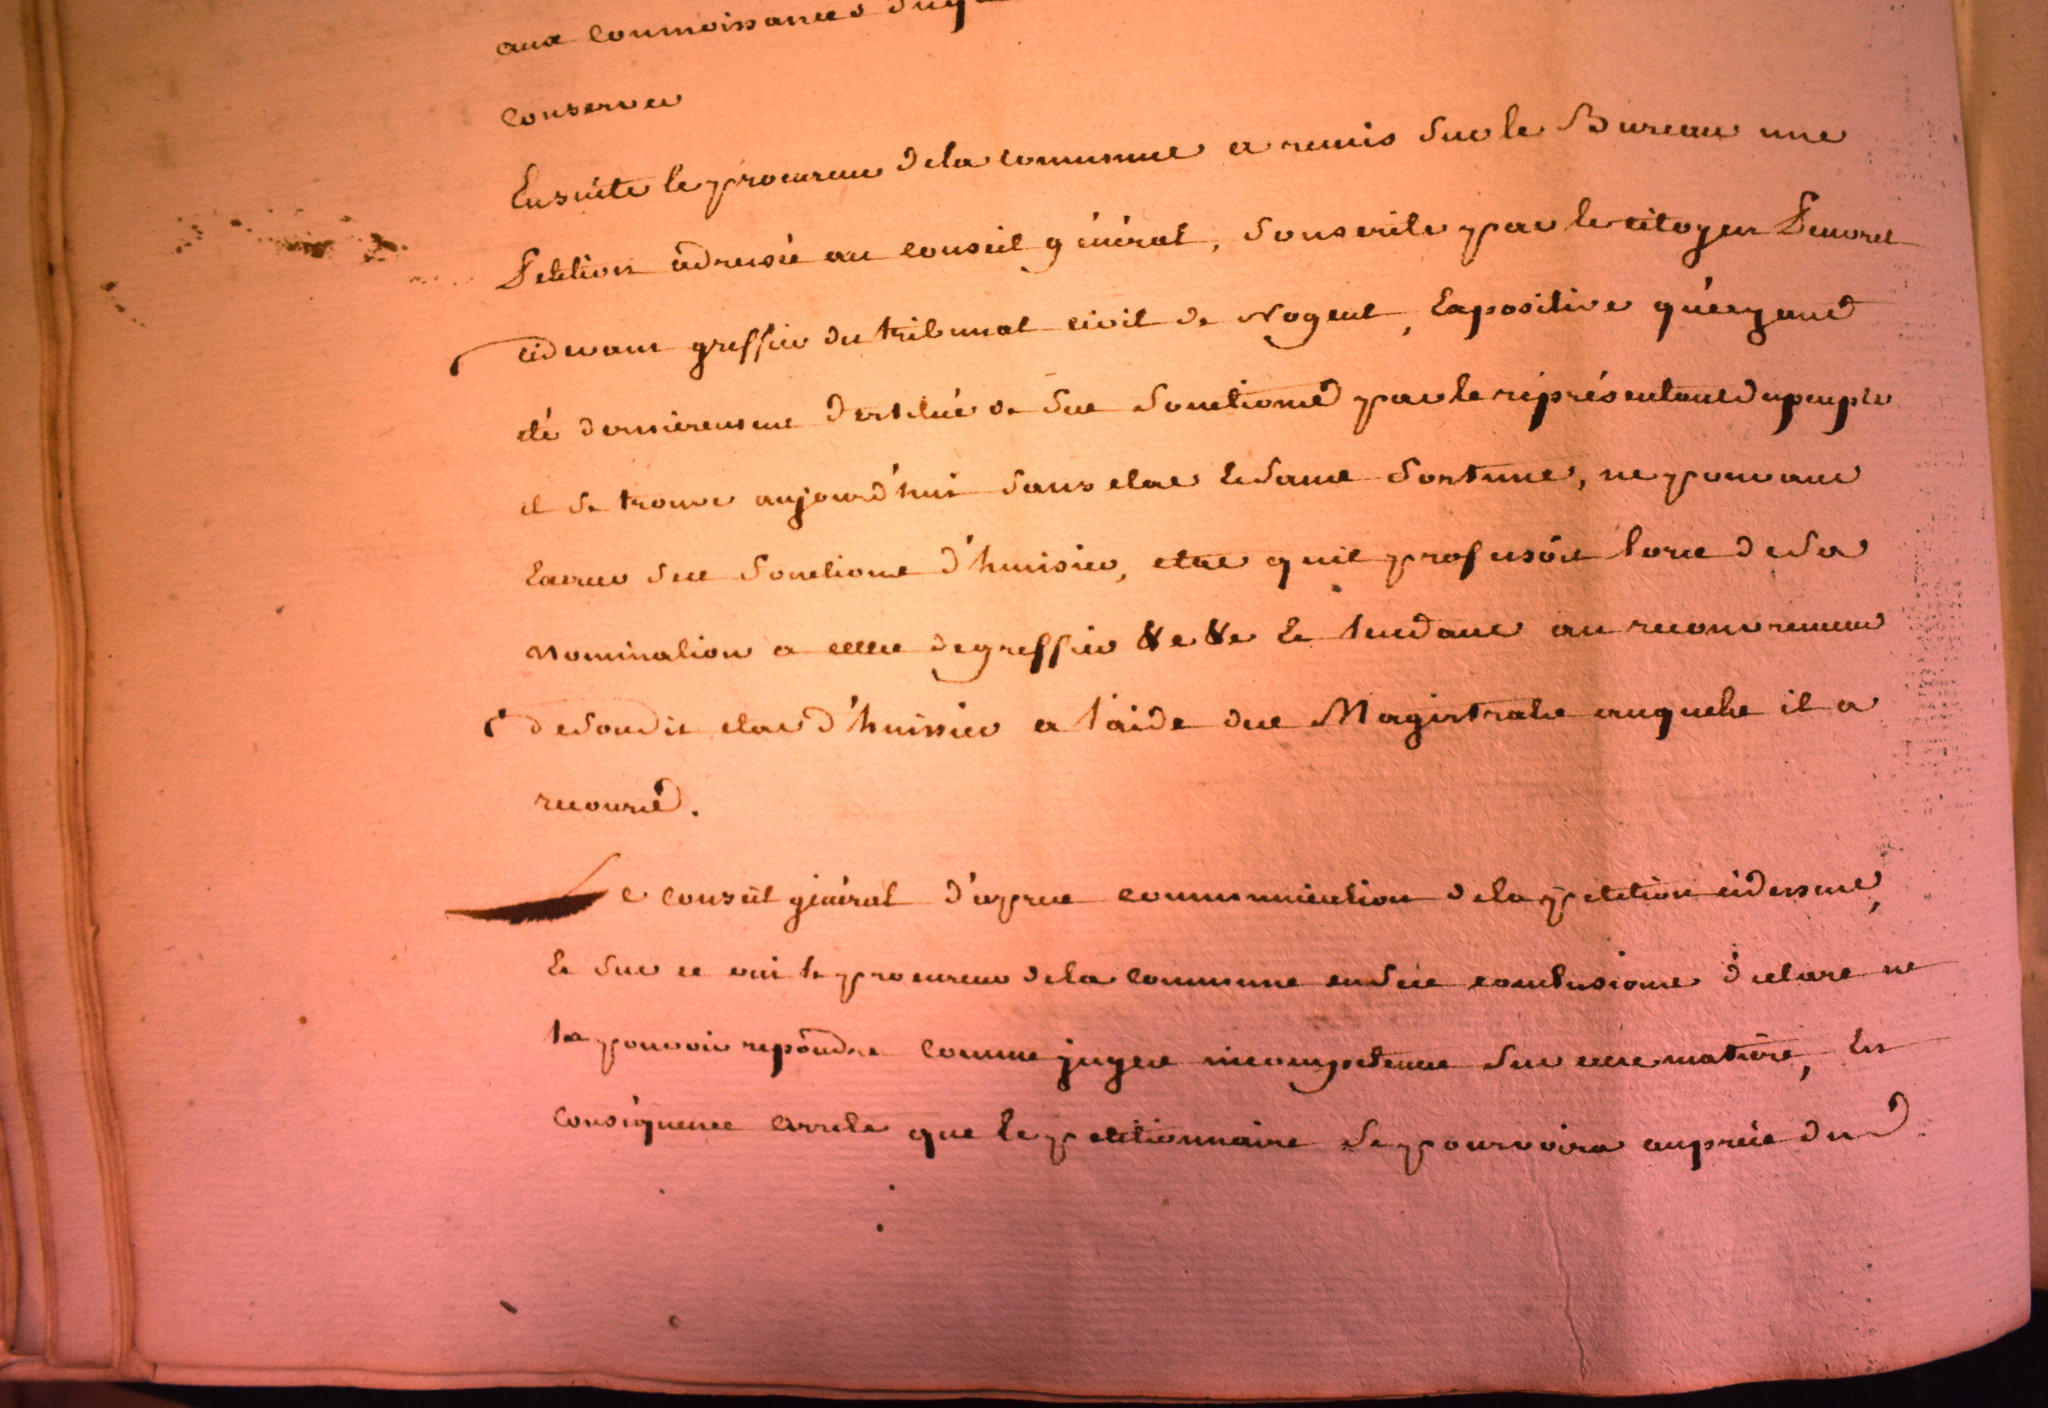 aux connoissances
conserver
Ensuite le procureur dela commune a remis sur le Bureau une
Petition adressée au conseil général, souscrite par le citoyen
cidevant greffier du tribunal civil de Nogent, Expositive qu'ayant
été dernierement destitué de ses fonctions par le représentant du peuple
il se trouve aujourd'hui sans etat et sans fortune, ne pouvant
Exercer ses fonctions d'huissier, etat qu'il professoit lors de sa
nomination a celle de greffier &c &c Et tendant au recouvrement
de sondit etat d'huissier a l'aide des Magistrats auquels il a
recours.
Le conseil général d'après communication dela petition cidessus,
Et sur ce oui le procureur dela commune en ses conclusions déclare ne
la pouvoir repondre comme juges incompetents sur cette matière, En
Conséquence Arrete que le petitionnaire se pourvoira auprès du